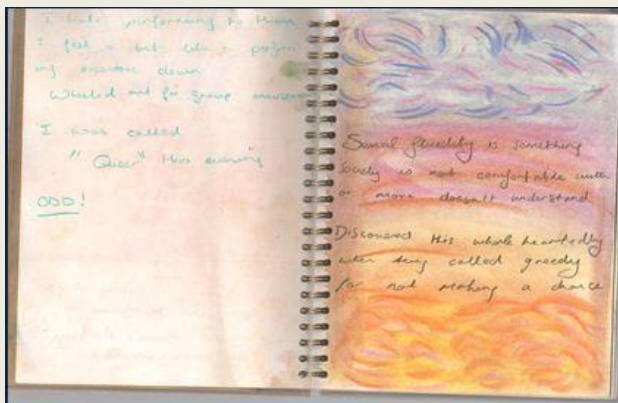 I hate performing to them
I feel a bit like a perform
ing down
Wheeled out for group amusement
"I was called
"Queer" this evening
ODD!
Sexual fluidity is something
Society is not comfortable with
or more doesn't understand
Discovered this whole heartedly
when being called greedy
for not making a choice